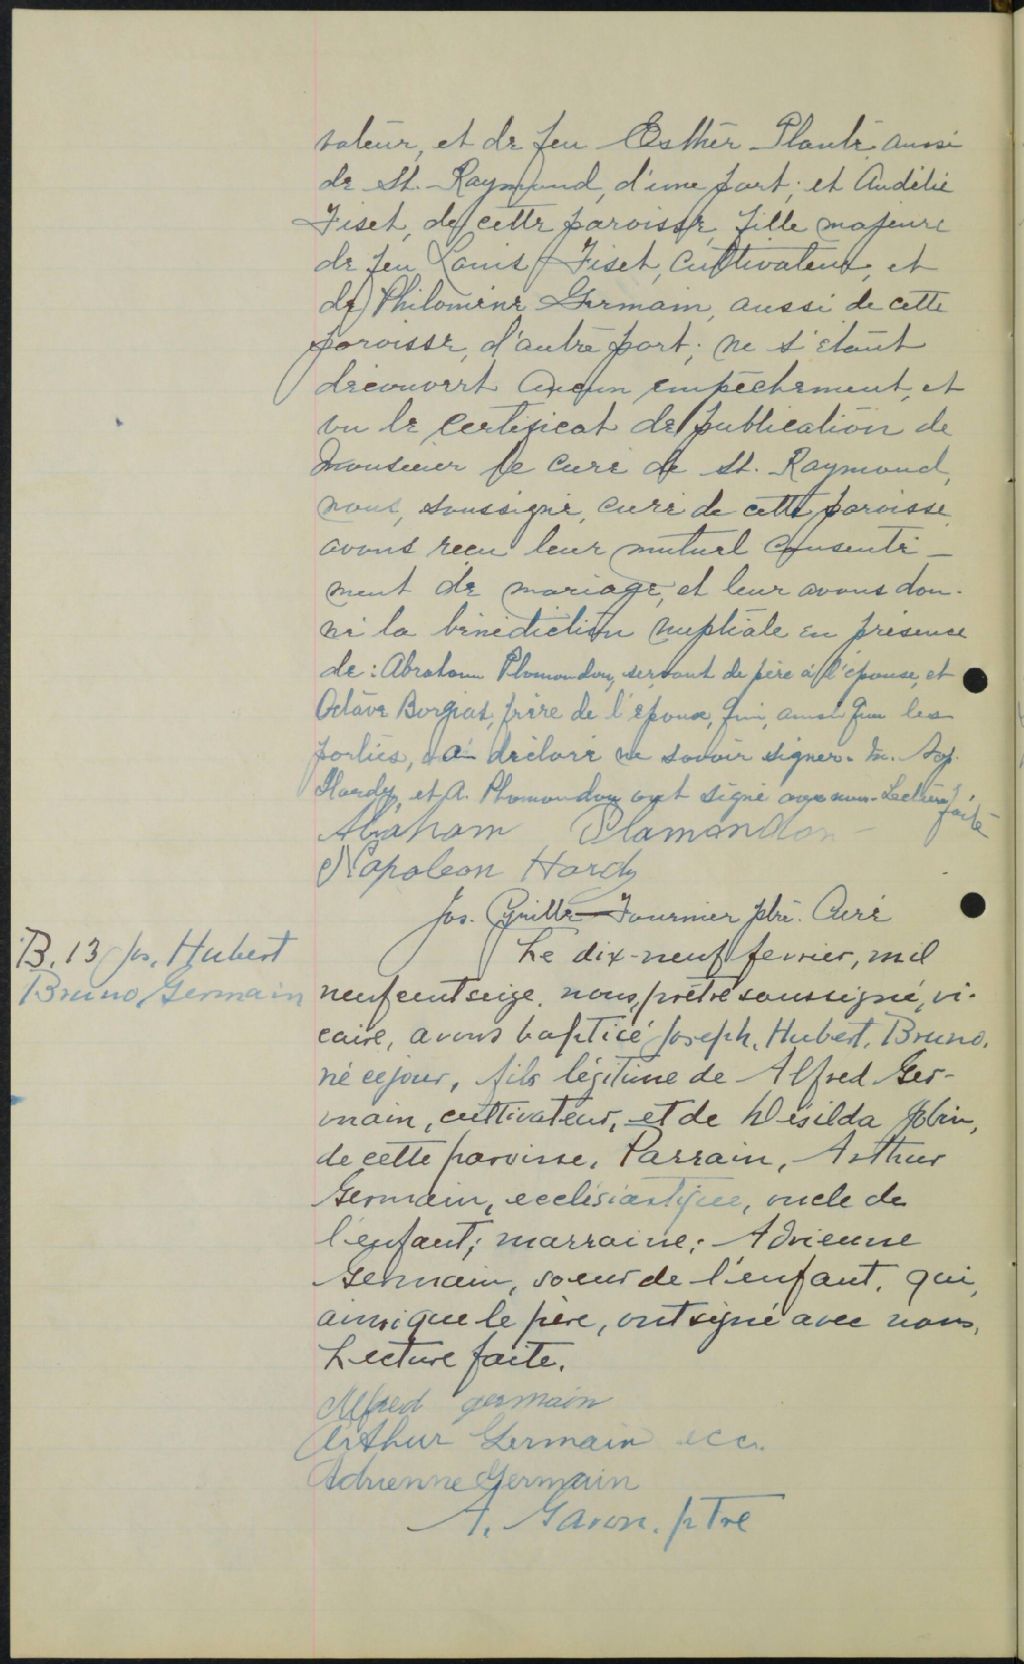 vateur, et de feu Esther Plante aussi
de St. Raymond, d'une part; et Audélie
Fiset, de cette paroisse, fille majeure
de feu Louis Fiset, cultivateur, et
de Philomène Germain, aussi de cette
paroisse, d'autre part; ne s'étant
découvert aucun empêchement, et
vu le certificat de publication de
Monsieur le curé de St. Raymond,
nous, soussigné, curé de cette paroisse
avons reçu leur mutuel consente-
ment de mariage, et leur avons don-
né la bénédiction nuptiale en présence
de: Abraham Plamondon, servant de père à l'épouse, et
Octave Borgias, frère de l'époux, qui, ainsi que les
parties, a déclaré ne savoir signer. Nap.
Hardy, et A. Plamondon ont signé avec nous. Lecture faite
Abraham Plamondon
Napoleon Hardy
Jos. Cyrille Fournier ptre. Curé
B. 13 Jos. Hubert
Bruno Germain
Le dix-neuf fevrier, mil
neuf cent seize, nous, prêtre soussigné, vi-
caire, avons baptisé Joseph, Hubert, Bruno,
né ce jour, fils légitime de Alfred Ger-
main, cultivateur, et de Wésilda Jobin,
de cette paroisse. Parrain, Arthur
Germain, ecclésiastique, oncle de
l'enfant; marraine: Adrienne
Germain, soeur de l'enfant, qui,
ainsi que le père, ont signé avec nous.
Lecture faite.
Alfred germain
Arthur Germain ecc.
Adrienne Germain
A. Gavon. ptre